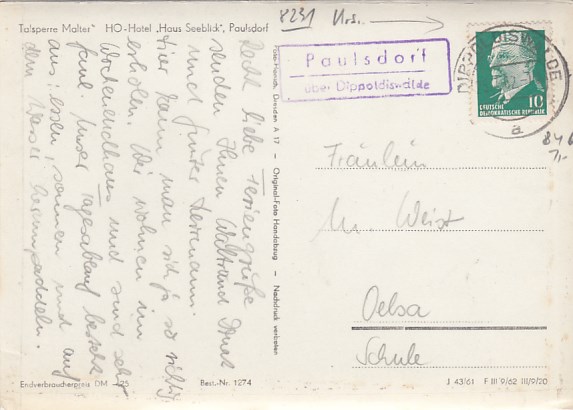 Talsperre Malter" HO-Hotel „Haus Seeblick", Paulsdorf
8231 Urs.
Paulsdorf
über Dippoldiswalde
DIPPOLDISWALDE
a
10
DEUTSCHE
DEMOKRATISCHE REPUBLIK
846
7,-
Recht liebe Feriengrüße
senden Ihnen Waltraud
und Günter Herrmann.
Hier kann man sich ja so richtig
erholen. Wir wohnen im
Wochenendhaus und sind sehr
faul. Unser Tagesablauf besteht
aus: essen, sonnen und auf
dem Wasser herumpaddeln.
Foto-Handabzug Dresden A 17 – Original-Foto Handabzug – Nachdruck verboten
Fräulein
Weist
Oelsa
Schule
Endverbraucherpreis DM -,25 Best.-Nr. 1274
J 43/61 F III 9/62 III/9/20